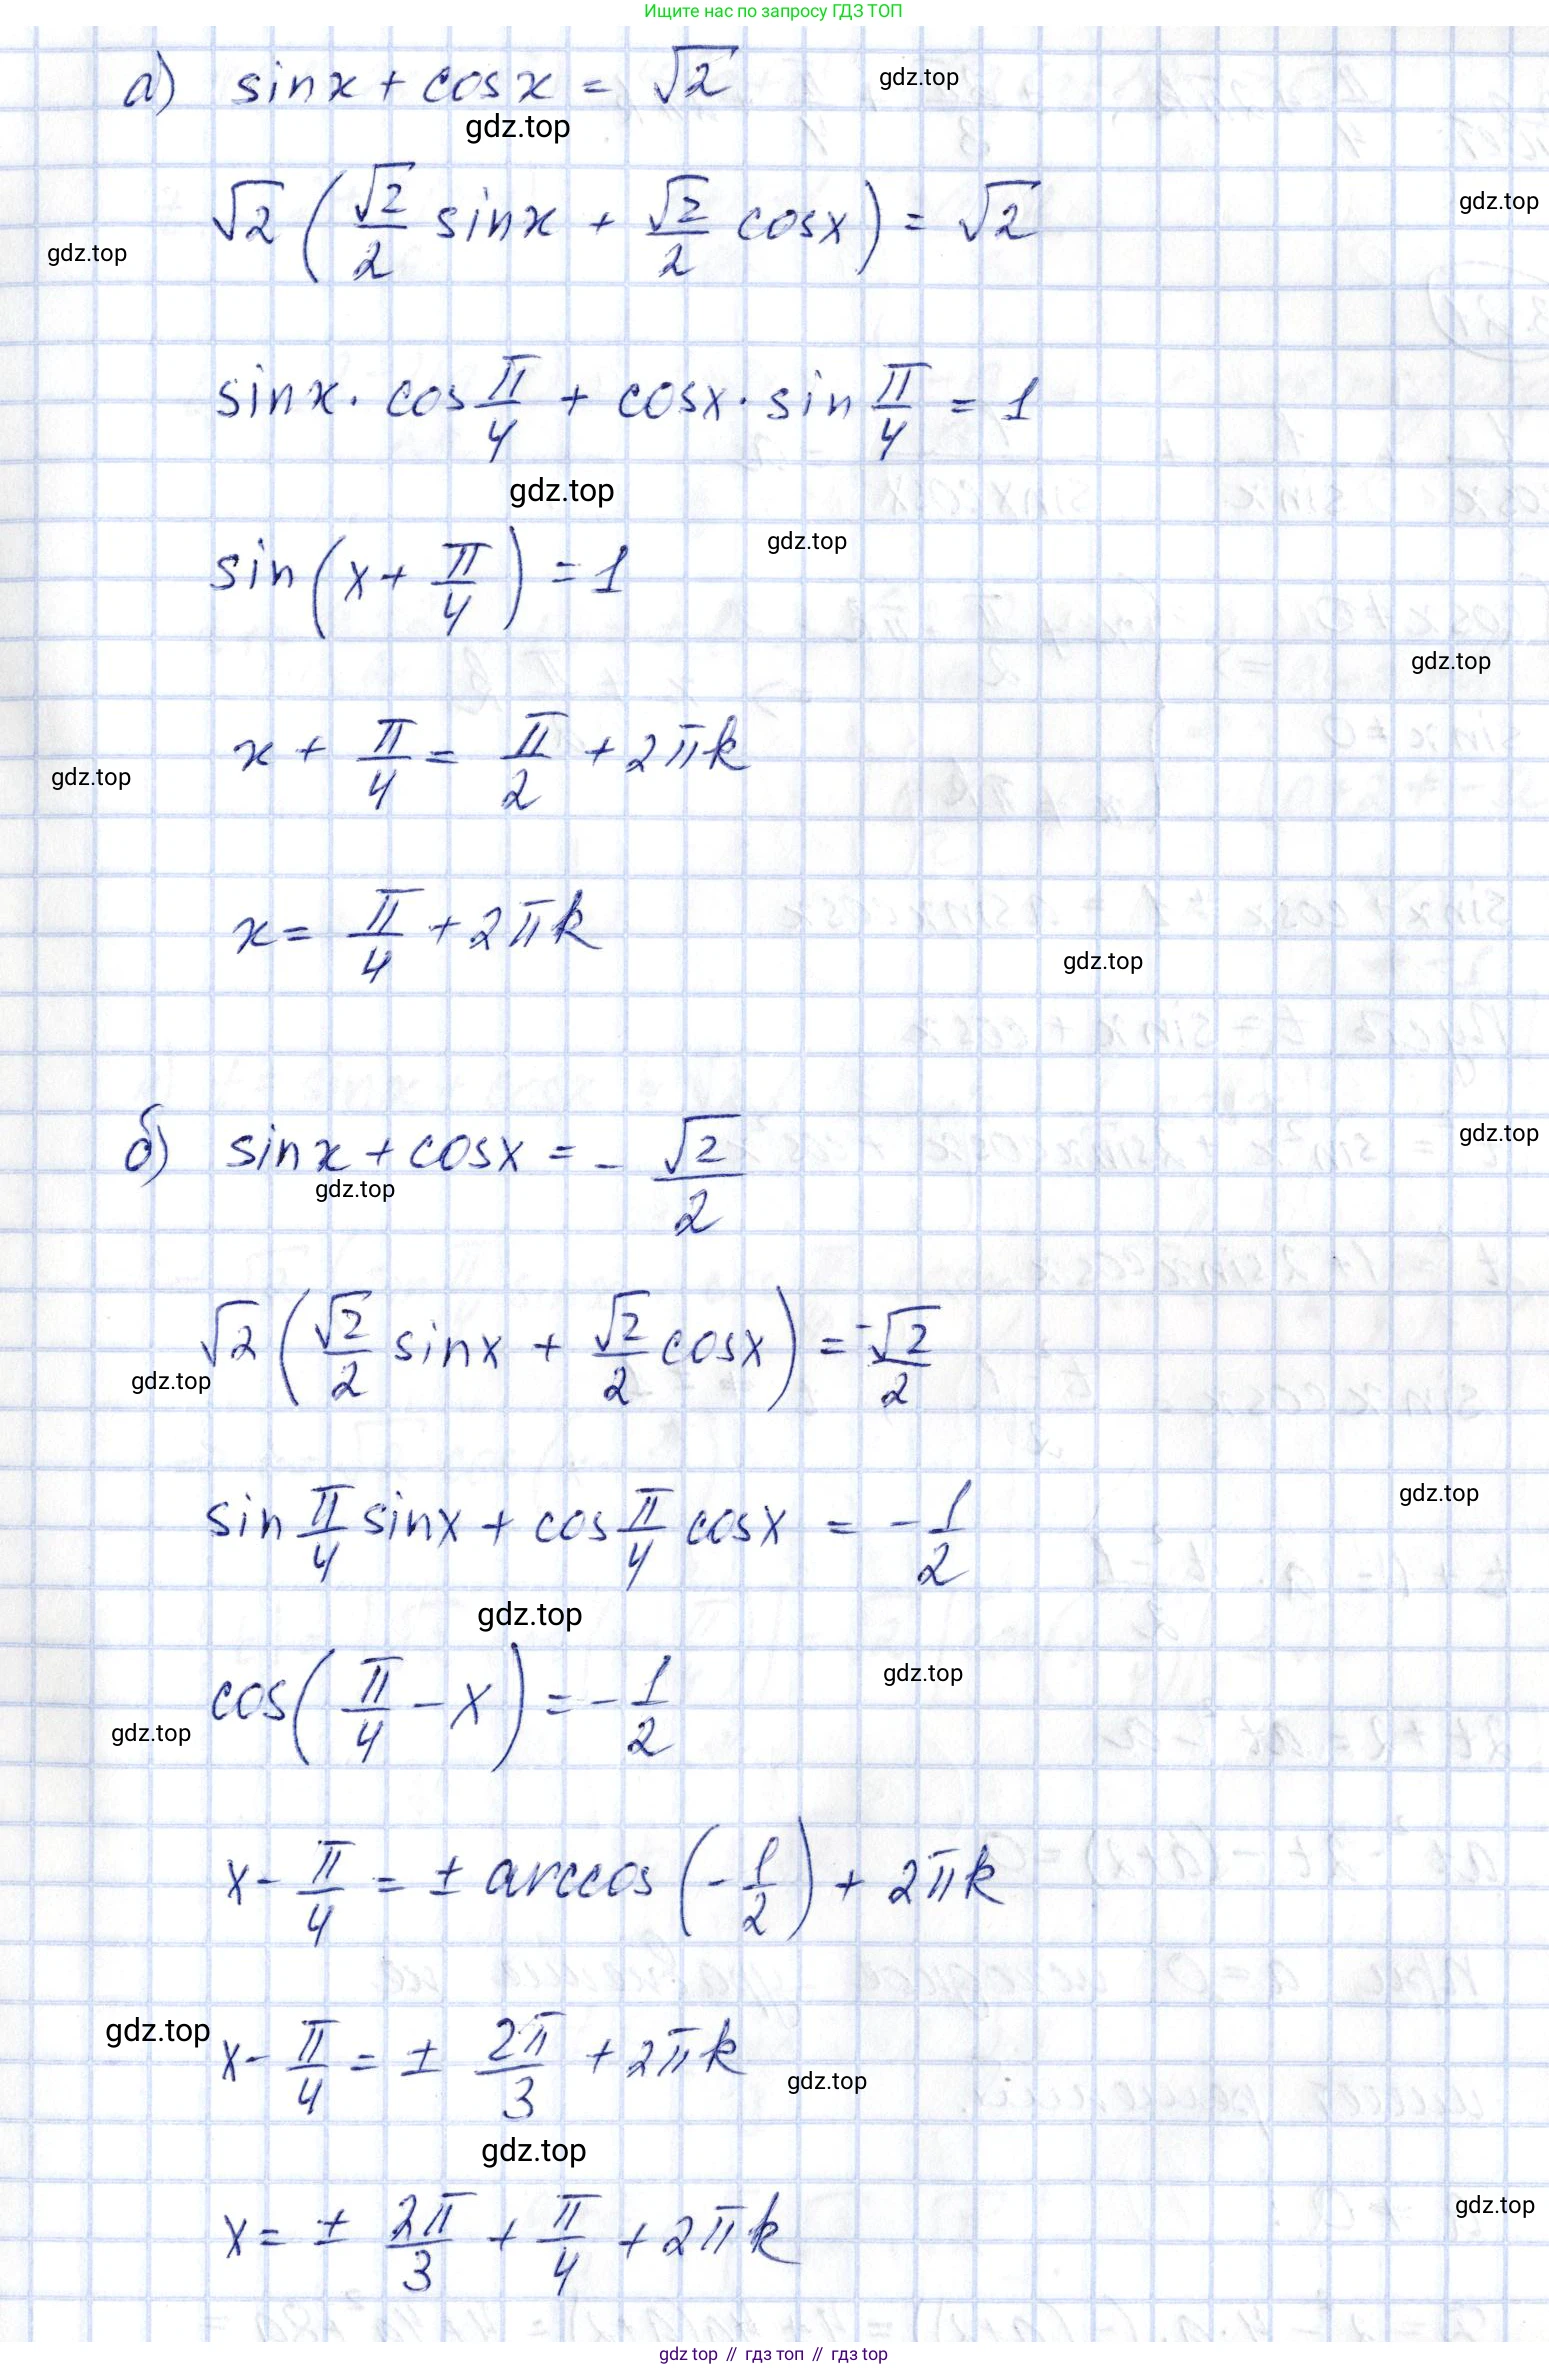 Ищите нас по запросу ГДЗ ТОП
а) sinx + cosx = √2
gdz.top
gdz.top
√2 (√2/2 sinx + √2/2 cosx) = √2
gdz.top
gdz.top
sinx · cos π/4 + cosx · sin π/4 = 1
gdz.top
gdz.top
sin(x + π/4) = 1
gdz.top
x + π/4 = π/2 + 2πk
gdz.top
x = π/4 + 2πk
gdz.top
б) sinx + cosx = - √2/2
gdz.top
gdz.top
√2 (√2/2 sinx + √2/2 cosx) = -√2/2
gdz.top
sin π/4 sinx + cos π/4 cosx = - 1/2
gdz.top
gdz.top
cos(π/4 - x) = - 1/2
gdz.top
gdz.top
x - π/4 = ± arccos(- 1/2) + 2πk
gdz.top
x - π/4 = ± 2π/3 + 2πk
gdz.top
gdz.top
x = ± 2π/3 + π/4 + 2πk
gdz.top
gdz top // гдз топ // гдз top